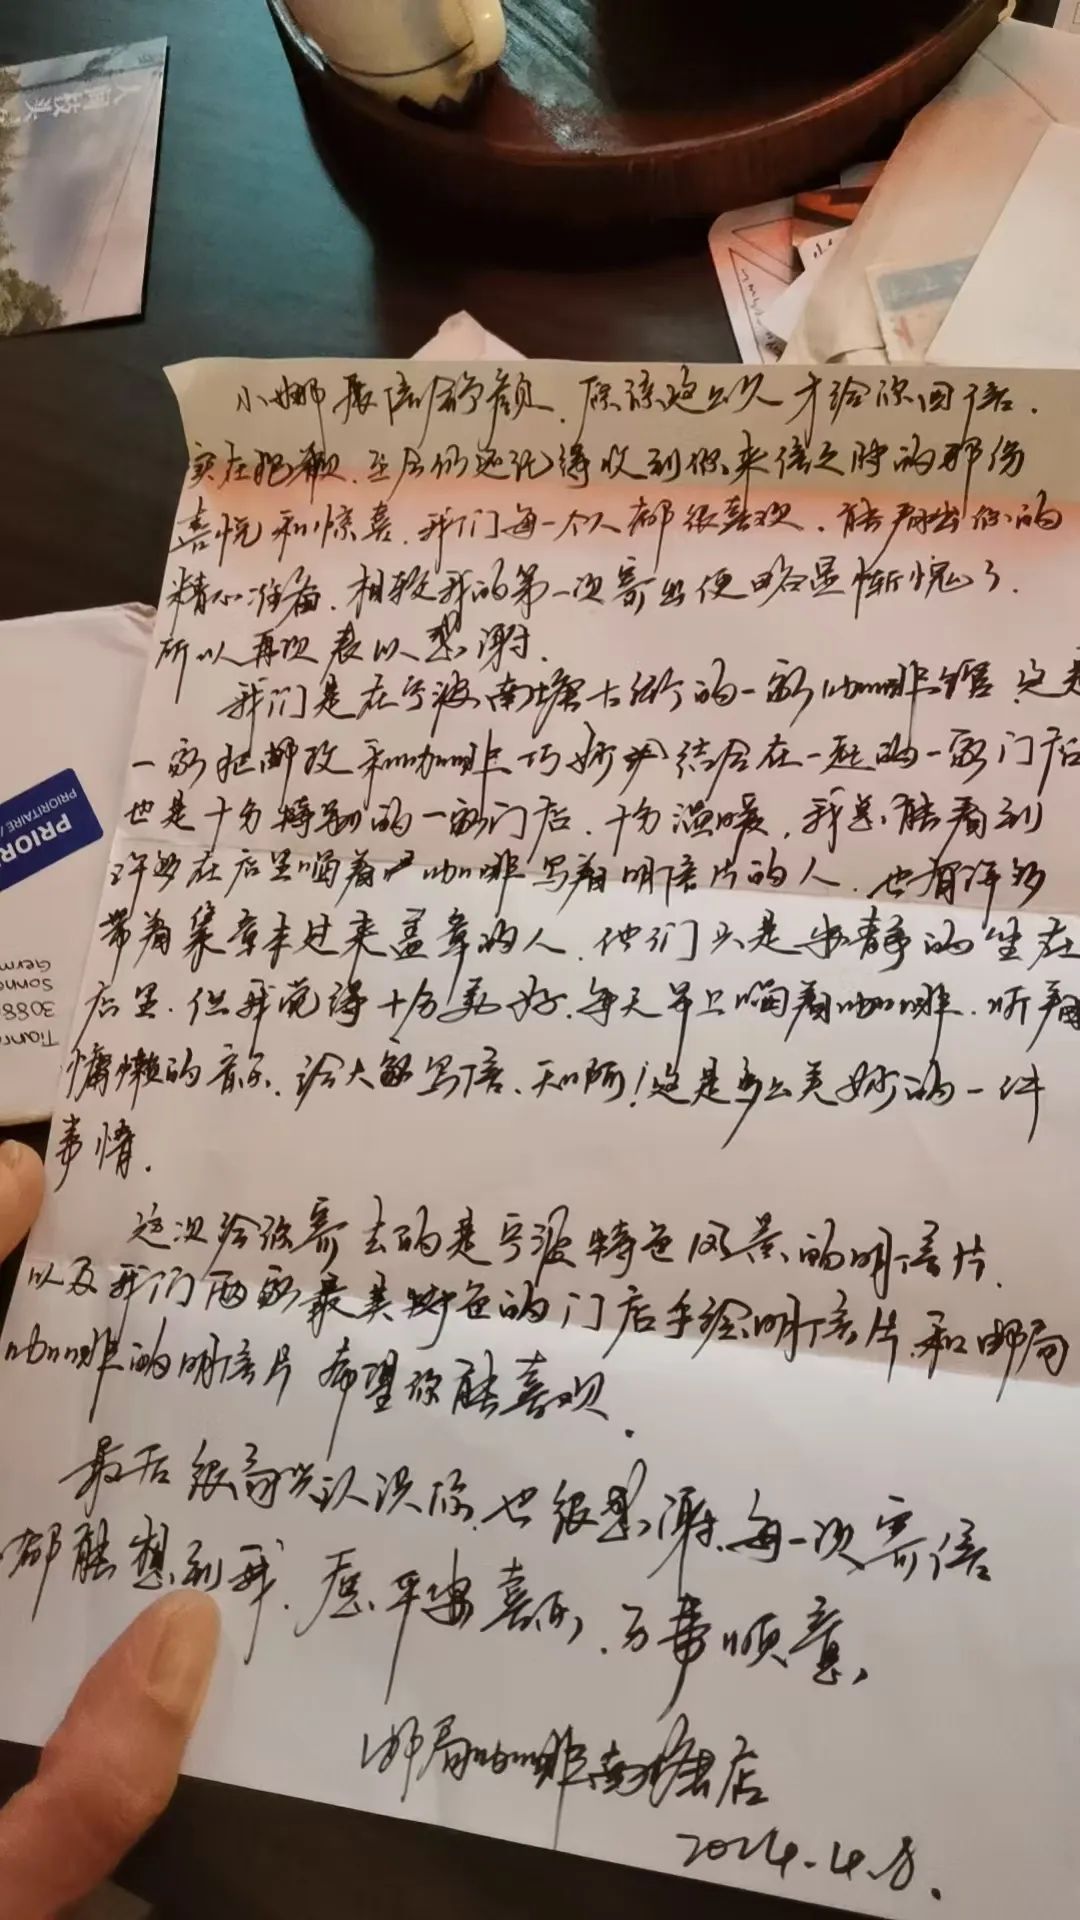 人间枝头
小娜展信舒颜、原谅这么久才给你回信.
实在抱歉、至今仍还记得收到你来信之时的那份
喜悦和惊喜、我们每一个人都很喜欢、能看出你的
精心准备、相较我的第一次寄出便略显惭愧了.
所以再次表以感谢.
我们是在宁波南塘古街的一家咖啡馆、这是
一家把邮政和咖啡巧妙结合在一起的一家门店
也是十分特别的一家门店、十分温暖、我总能看到
许多在店里喝着咖啡写着明信片的人、也有许多
带着集章本过来盖章的人、他们只是安静的坐在
店里、但我觉得十分美好、每天早上喝着咖啡、听着
慵懒的音乐、给大家写信、天啊!这是多么美妙的一件
事情.
这次给你寄去的是宁波特色风景的明信片、
以及我们两家最具特色的门店手绘明信片、和邮局
咖啡的明信片 希望你能喜欢.
最后很高兴认识你、也很感谢、每一次寄信
都能想到我、愿平安喜乐、万事顺意、
邮局咖啡南塘店
2024.4.8.
PRIORITAIRE
Germ
Sonn
3088
Tian